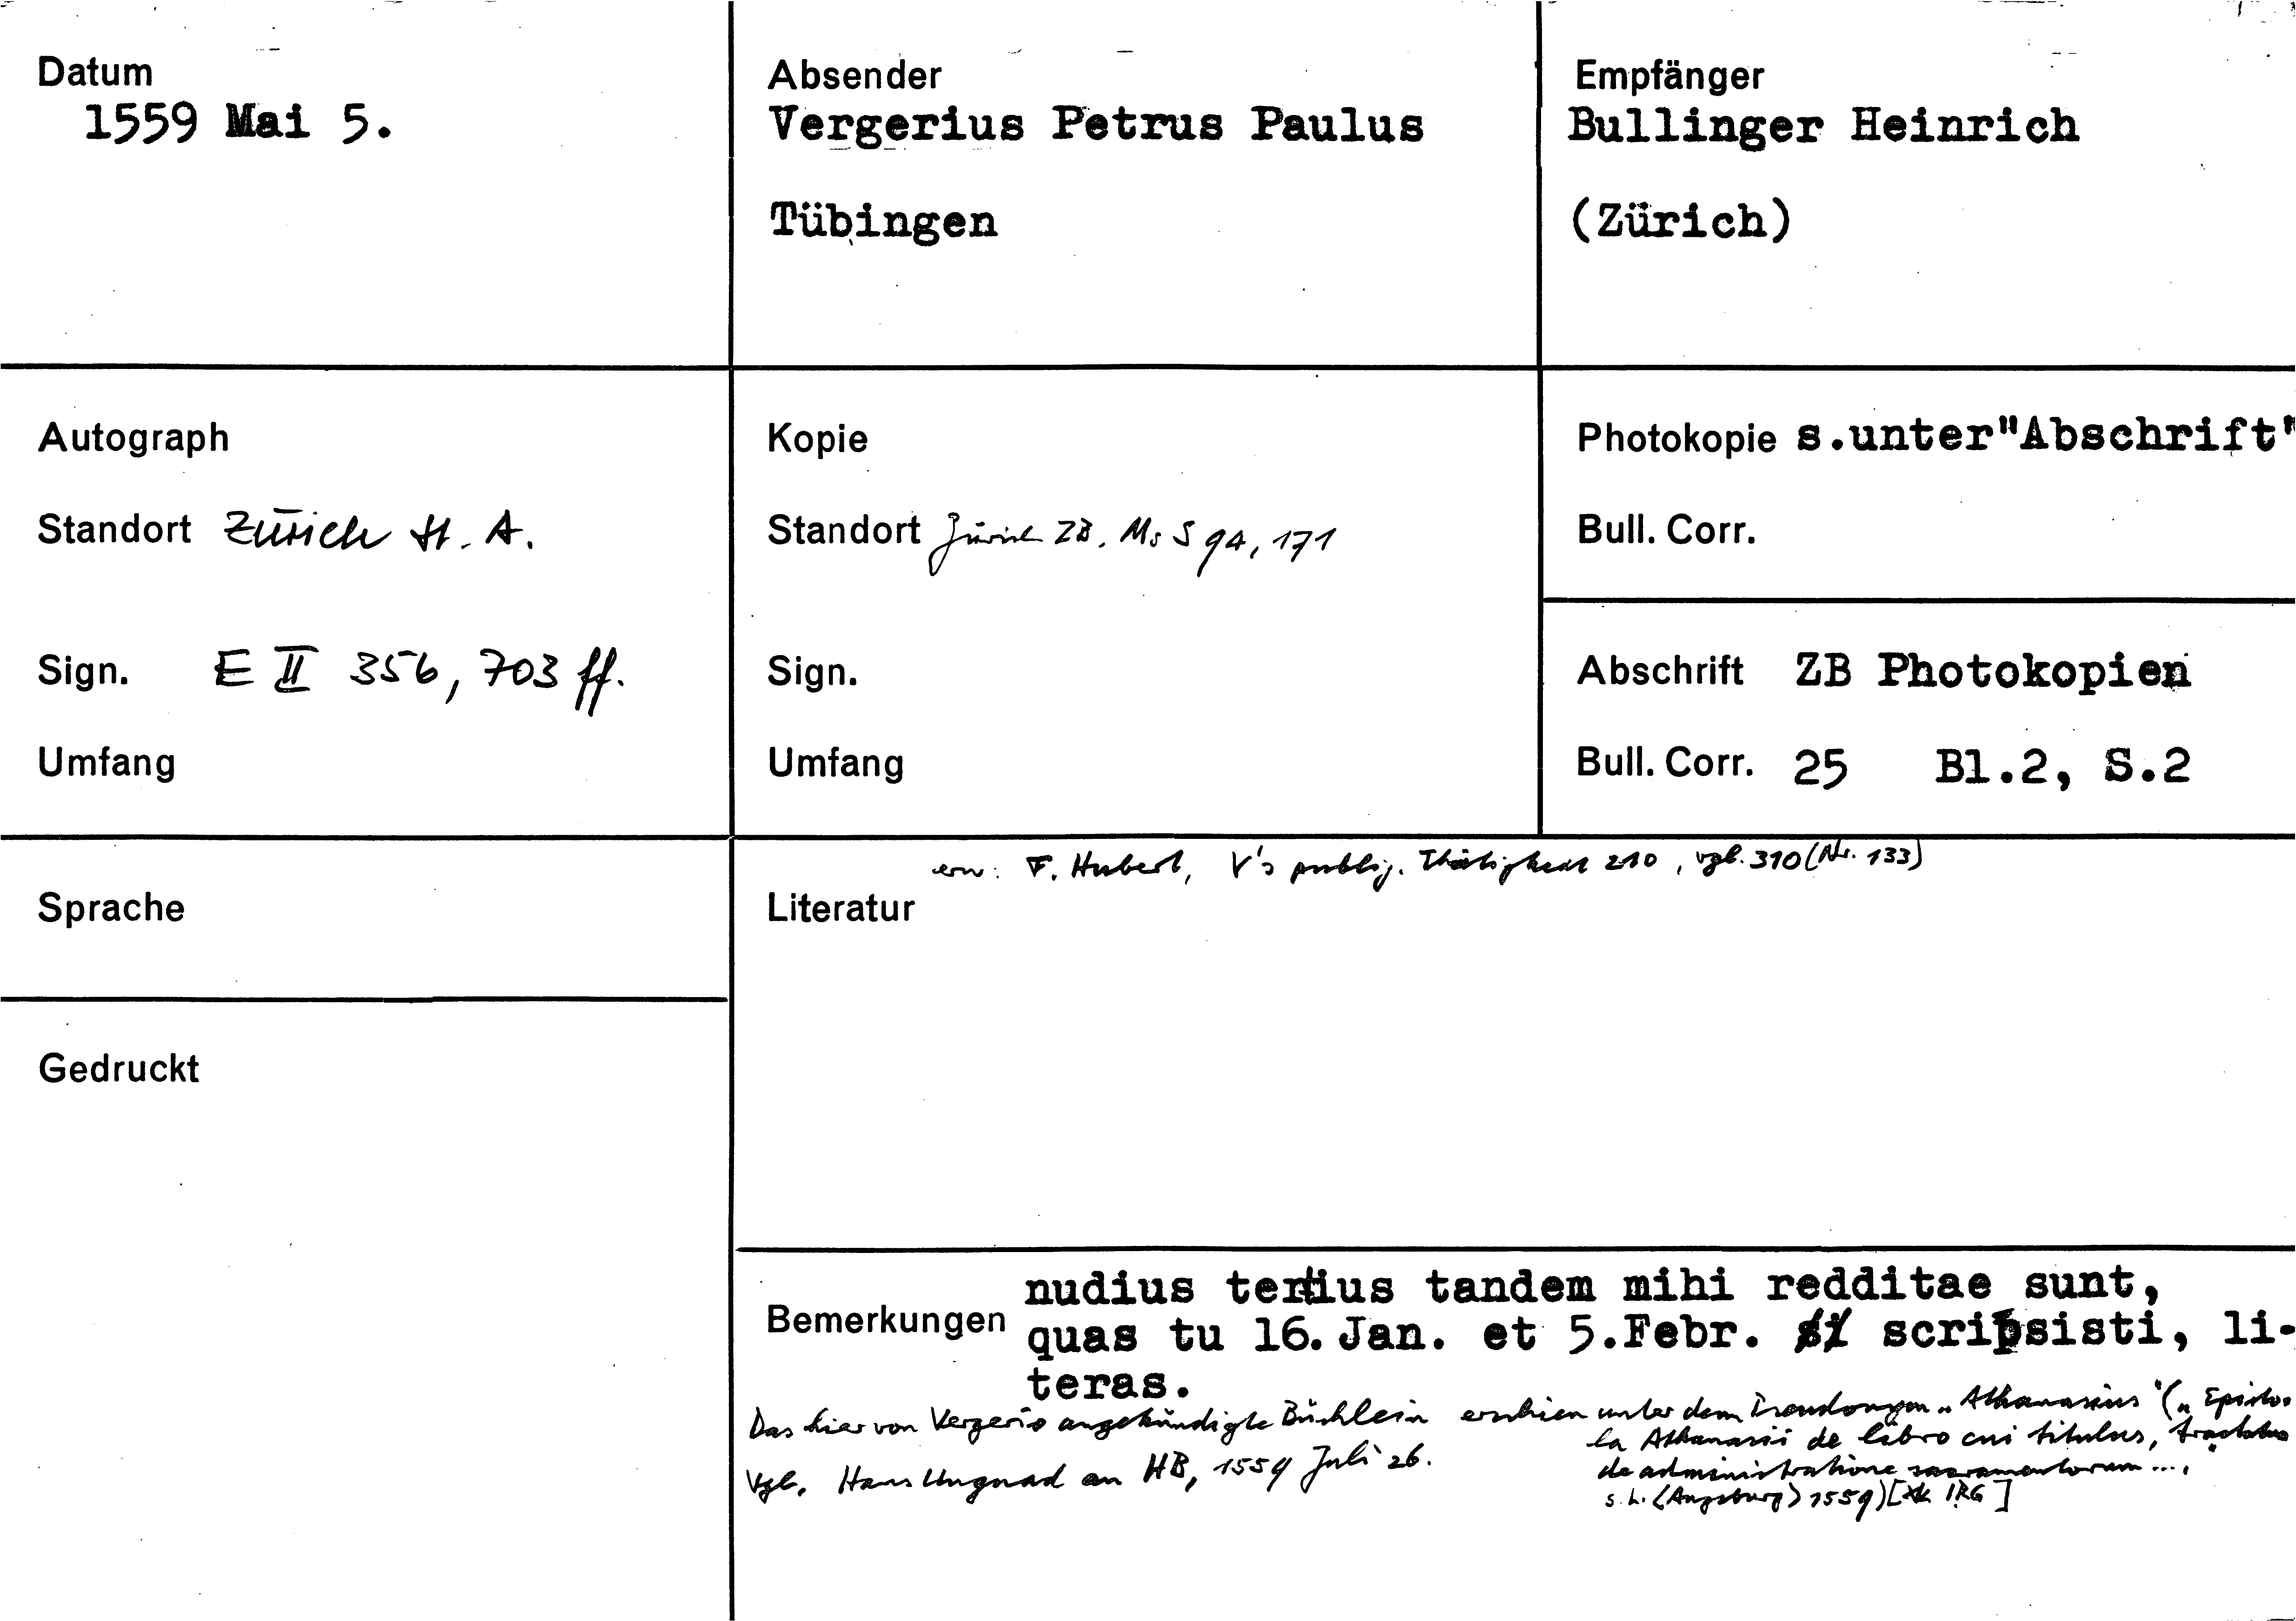 Datum
1559 Mai 5.
Absender
Vergerius Petrus Paulus
Tübingen
Empfänger
Bullinger Heinrich
(Zürich)
Autograph
Standort Zürich St. A.
Sign. E II 356, 703 ff.
Umfang
Kopie
Standort Zürich ZB. Ms S 94, 171
Sign.
Umfang
Photokopie s.unter"Abschrift"
Bull. Corr.
Abschrift ZB Photokopien
Bull. Corr. 25 Bl.2, S.2
Sprache
Gedruckt
erw: F. Hubert, V's publiz. Thätigkeit 210, vgl. 310 (Nr. 133)
Literatur
nudius tertius tandem mihi redditae sunt,
Bemerkungen quas tu 16. Jan. et 5.Febr. scripsisti, li-
teras.
Das hier von Vergerio angekündigte Büchlein erschien unter dem Pseudonym „Athanasius" („Episto-
la Athanasii de libro cui titulus, tractatus
de administratione sacramentorum ...,
s. l. <Augsburg> 1559) [IRG]
Vgl. Hans Ungnad an HB, 1559 Juli 26.